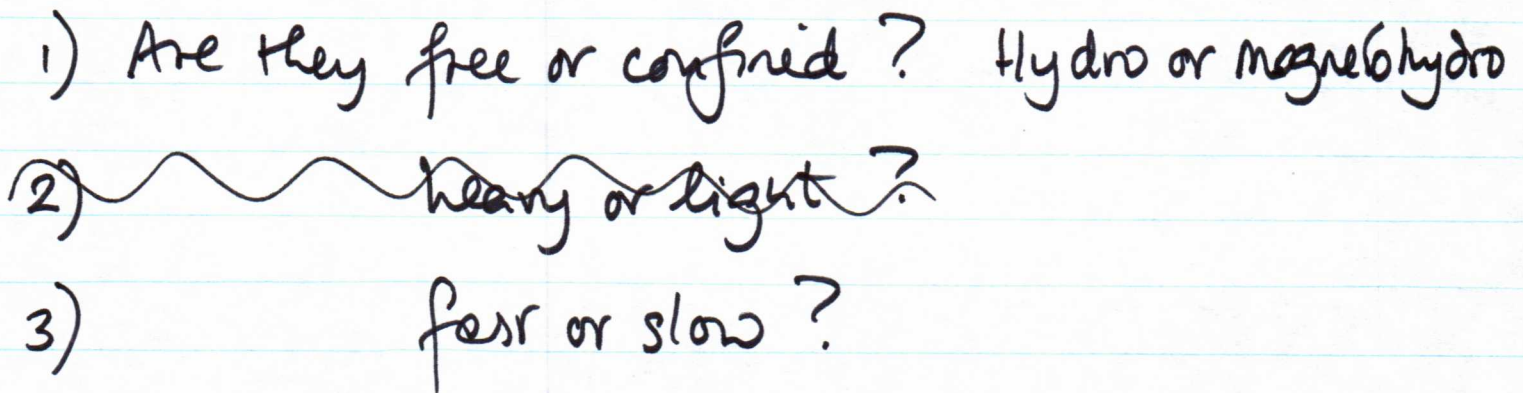 1) Are they free or confined? Hydro or magnetohydro
2) heavy or light?
3) fast or slow?